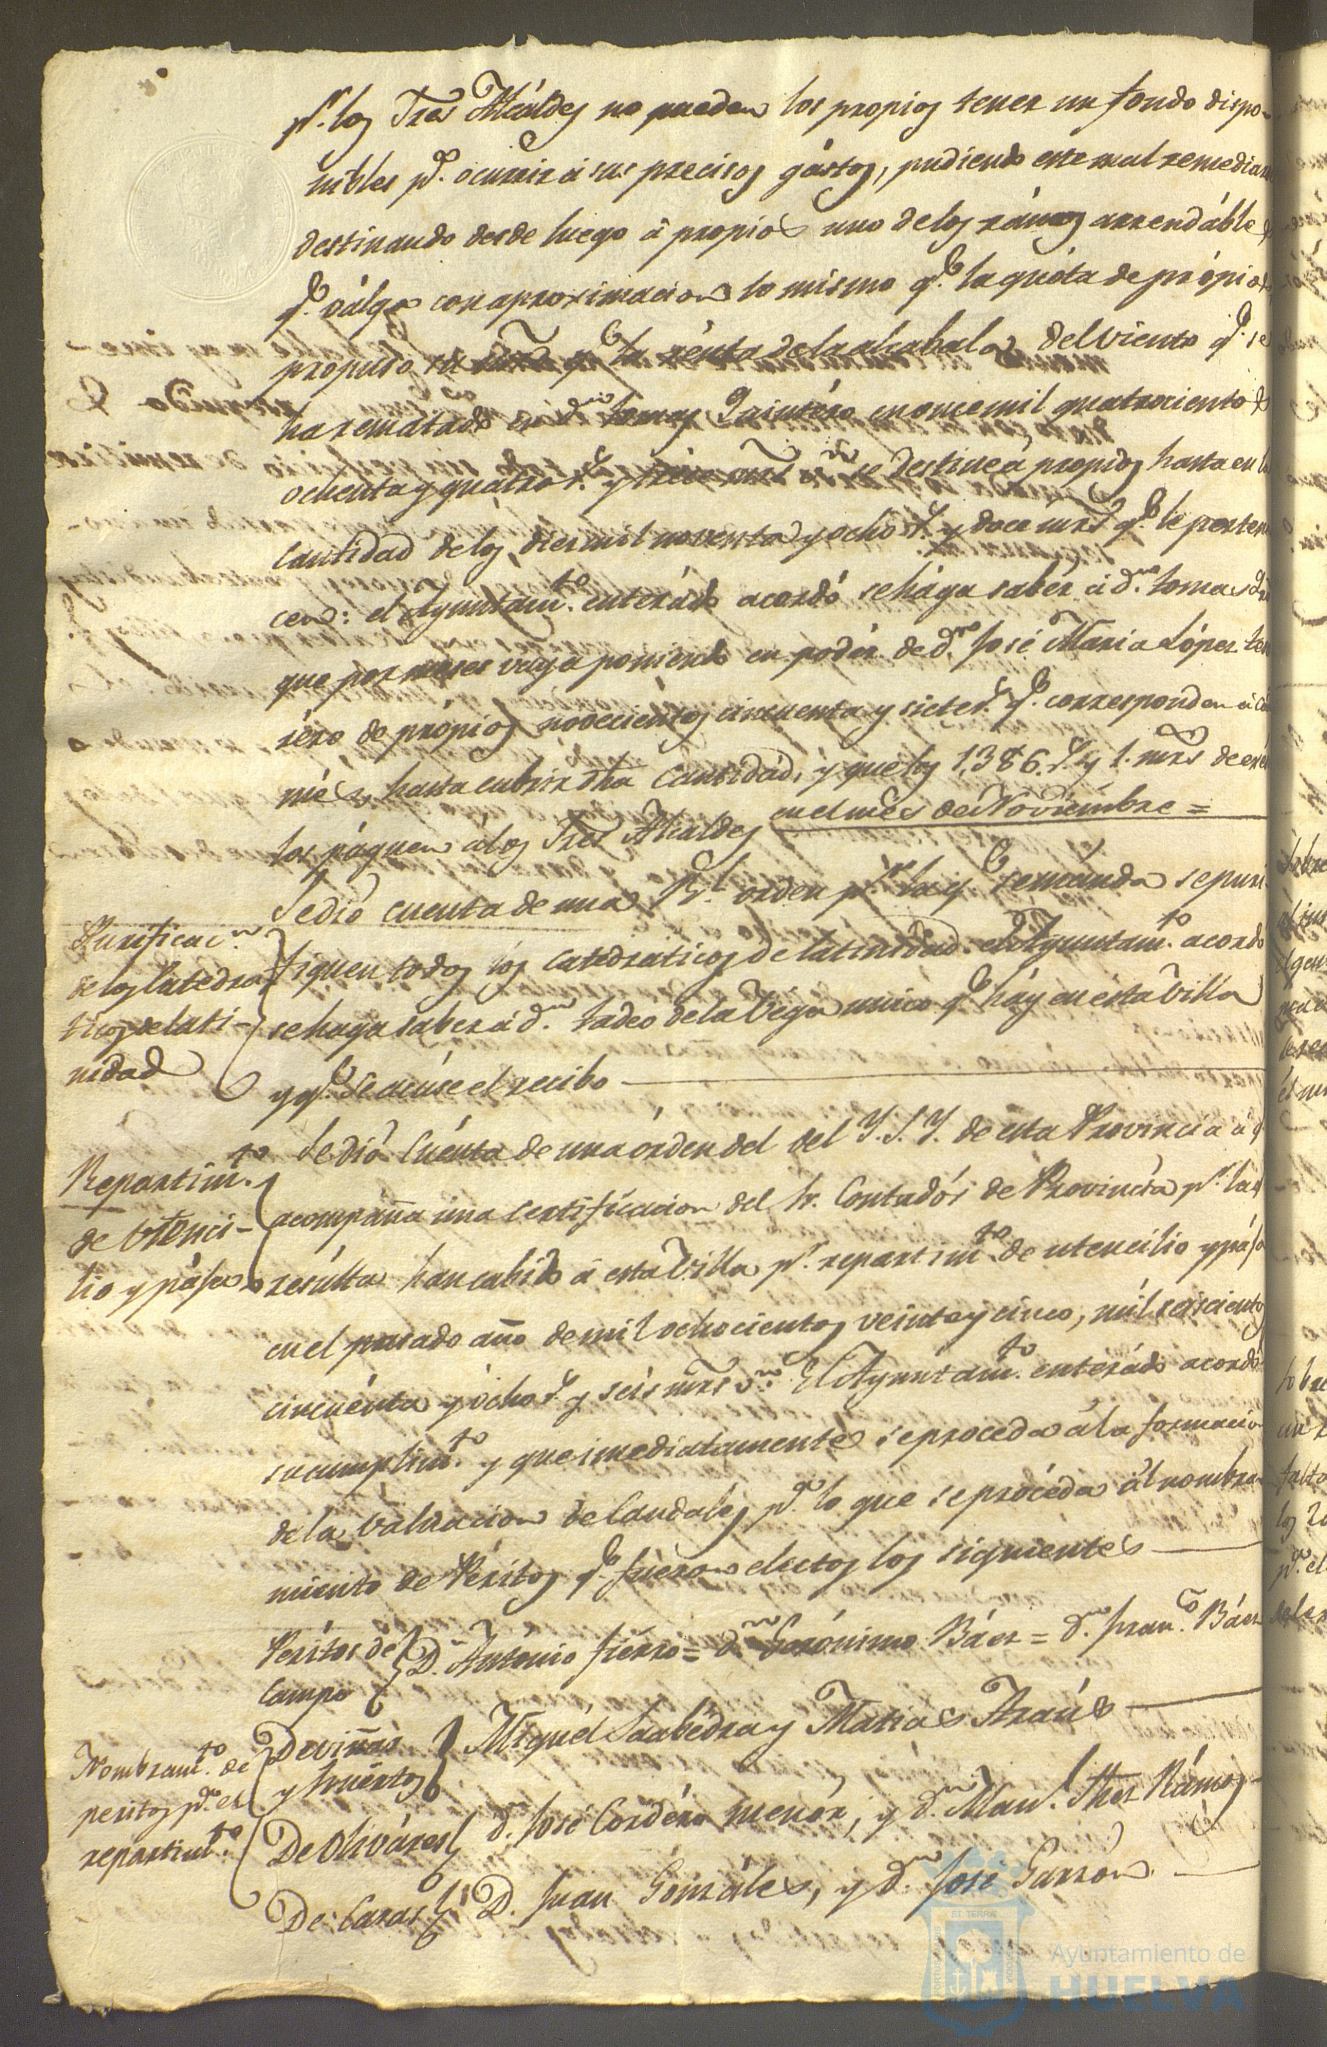 pr. los Tres Alcaldes no pueden los propios tener un fondo dispo-
nibles pa. ocurrir á sus precisos gástos, pudiendo este mal remediarse
destinando desde luego á propios uno de los rámos arrendábles
qe. válga con aproximacion lo mismo qe. la quóta de própios
propuso su mrd. qe. la rénta de la alcabala del viento qe. se
ha rematado en Dn. Tomas Quintéro en once mil quatrocientos
ochenta y quátro rs. y trece mrs. vn. se destine á propios hasta en la
cantidad de los diez mil noventa y ocho rs. y doce mrs. qe. le perten-
cen: el Ayuntamto. enterádo acordó se hága sabér á Dn. Tomas Qui
que por meses vaya poniendo en podér de Dn. José Maria Lópéz teso
réro de própios novecientos cincuenta y siete rs. qe. corresponden á cá
més, hasta cubrir dha cantidád, y que los 1.386. rs. y 1. mrs de
los páguen á los Tres Alcaldes en el més de Noviémbre =
Purificacn.
de los Catedra
ticos de lati-
nidad
Se dió cuenta de una Rl. orden pr. la qe. se mánda se puri
fiquen todos los catedráticos de latinidad: el Ayuntamto. acordó
se haga saber á Dn. Tadeo de la Véga unico qe. háy en esta Villa
y qe. se acúse el recibo
Repartimto.
de Utenci-
lio y pája
Se dió Cuénta de una órden del del Y.S.Y. de esta Provincia á q
acompaña úna certificacion del Sr. Contadór de Província pr. la q
resúlta han cabido á esta Villa pr. repartimto. de utencilio y pája
en el pasado año de mil ochocientos veinte y cinco, mil seiscientos
cincuénta y ócho rs. y séis mrs vn. El Ayuntamto. enterádo acordó
su cumplimto. y que inmediatamente se proceda á la formacion
de la valuacion de Caudales pa. lo que se procéda al nombra-
miento de Péritos qe. fuéron electos los siguientes
Peritos de
Campo
D. António Fiérro = Dn. Gerónimo Báez = Dn. Franco. Báez
Nombramto. de
peritos pa. el
repartimto.
De viñas
y huértos
Miguél Saabédra y Matias Araús
De Olivares
Dn. José Cordéro menór, y Dn. Manl. Thor Rámos
De Casas
D. Juan Gonzáles, y Dn. José Garzón
Ayuntamiento de
HUELVA